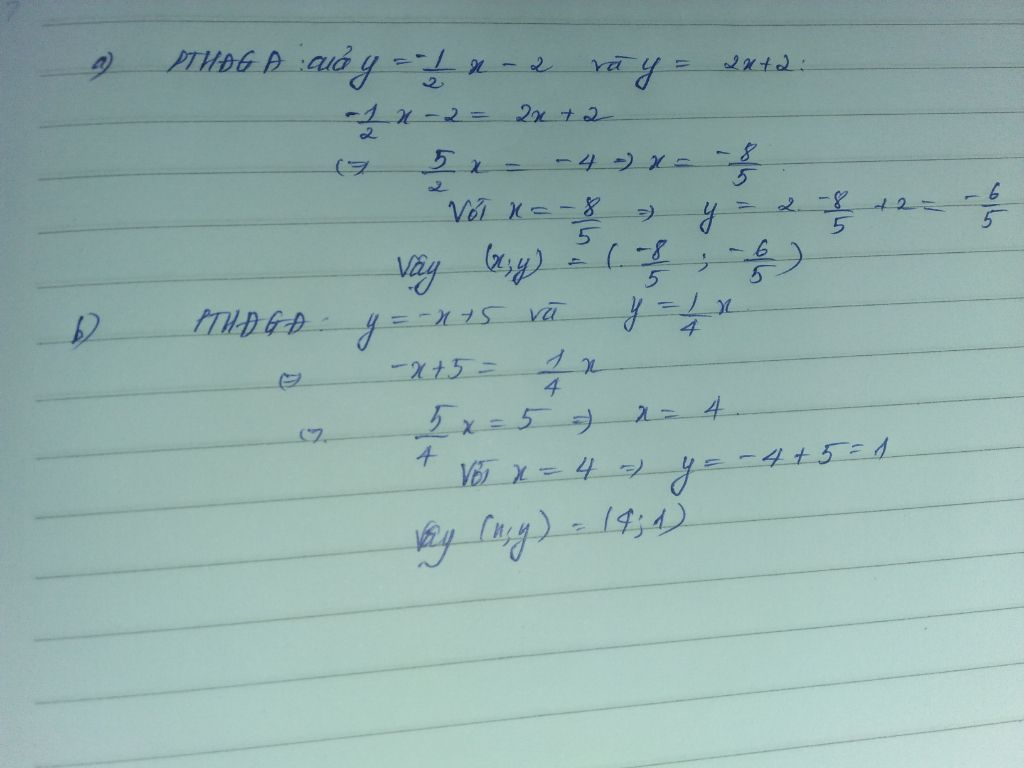 a) PTHĐGĐ : của y = -1/2 x - 2 và y = 2x+2:
-1/2 x - 2 = 2x + 2
(=> 5/2 x = -4 => x = -8/5
Với x = -8/5 => y = 2. -8/5 + 2 = -6/5
Vậy (x;y) = ( -8/5 ; -6/5 )
b) PTHĐGĐ: y = -x+5 và y = 1/4 x
<=> -x+5 = 1/4 x
<=> 5/4 x = 5 => x = 4.
Với x = 4 => y = -4+5 = 1
Vậy (x;y) = (4;1)